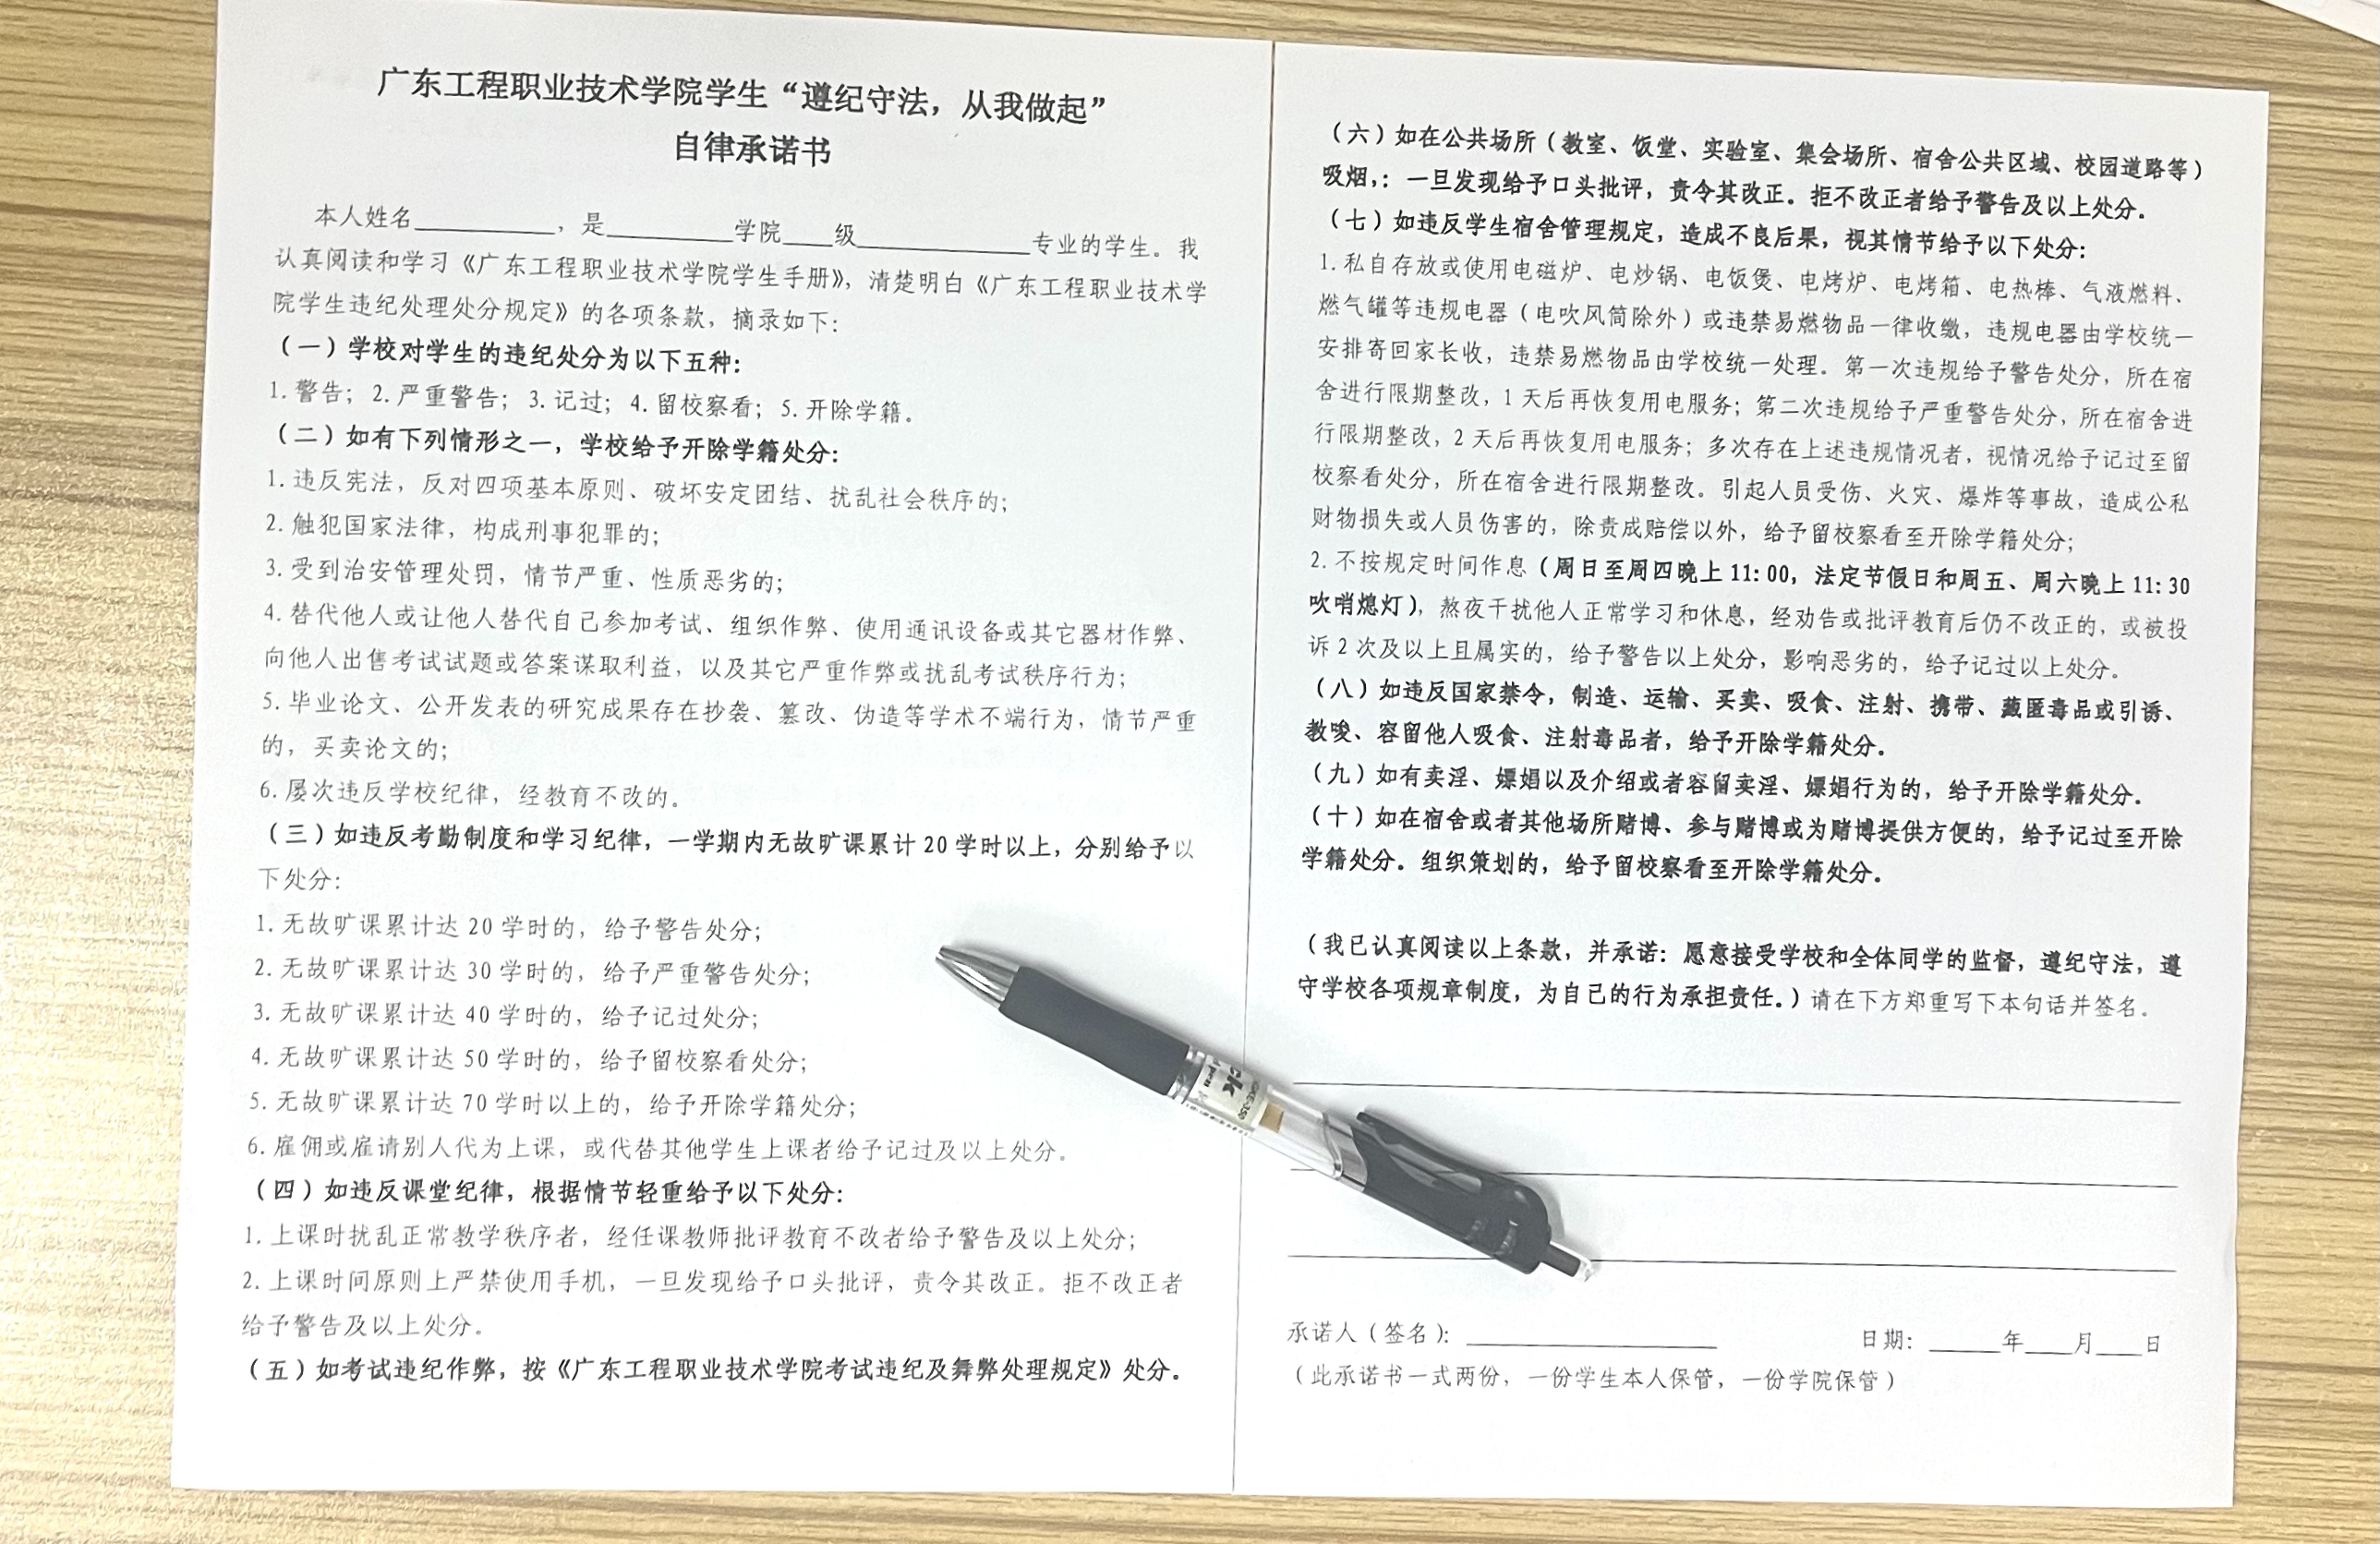 广东工程职业技术学院学生“遵纪守法，从我做起”
自律承诺书
本人姓名__________，是__________学院____级______________专业的学生。我
认真阅读和学习《广东工程职业技术学院学生手册》，清楚明白《广东工程职业技术学
院学生违纪处理处分规定》的各项条款，摘录如下：
（一）学校对学生的违纪处分为以下五种：
1. 警告；2. 严重警告；3. 记过；4. 留校察看；5. 开除学籍。
（二）如有下列情形之一，学校给予开除学籍处分：
1. 违反宪法，反对四项基本原则、破坏安定团结、扰乱社会秩序的；
2. 触犯国家法律，构成刑事犯罪的；
3. 受到治安管理处罚，情节严重、性质恶劣的；
4. 替代他人或让他人替代自己参加考试、组织作弊、使用通讯设备或其它器材作弊、
向他人出售考试试题或答案谋取利益，以及其它严重作弊或扰乱考试秩序行为；
5. 毕业论文、公开发表的研究成果存在抄袭、篡改、伪造等学术不端行为，情节严重
的，买卖论文的；
6. 屡次违反学校纪律，经教育不改的。
（三）如违反考勤制度和学习纪律，一学期内无故旷课累计 20 学时以上，分别给予以
下处分：
1. 无故旷课累计达 20 学时的，给予警告处分；
2. 无故旷课累计达 30 学时的，给予严重警告处分；
3. 无故旷课累计达 40 学时的，给予记过处分；
4. 无故旷课累计达 50 学时的，给予留校察看处分；
5. 无故旷课累计达 70 学时以上的，给予开除学籍处分；
6. 雇佣或雇请别人代为上课，或代替其他学生上课者给予记过及以上处分。
（四）如违反课堂纪律，根据情节轻重给予以下处分：
1. 上课时扰乱正常教学秩序者，经任课教师批评教育不改者给予警告及以上处分；
2. 上课时间原则上严禁使用手机，一旦发现给予口头批评，责令其改正。拒不改正者
给予警告及以上处分。
（五）如考试违纪作弊，按《广东工程职业技术学院考试违纪及舞弊处理规定》处分。
（六）如在公共场所（教室、饭堂、实验室、集会场所、宿舍公共区域、校园道路等）
吸烟，：一旦发现给予口头批评，责令其改正。拒不改正者给予警告及以上处分。
（七）如违反学生宿舍管理规定，造成不良后果，视其情节给予以下处分：
1. 私自存放或使用电磁炉、电炒锅、电饭煲、电烤炉、电烤箱、电热棒、气液燃料、
燃气罐等违规电器（电吹风筒除外）或违禁易燃物品一律收缴，违规电器由学校统一
安排寄回家长收，违禁易燃物品由学校统一处理。第一次违规给予警告处分，所在宿
舍进行限期整改，1 天后再恢复用电服务；第二次违规给予严重警告处分，所在宿舍进
行限期整改，2 天后再恢复用电服务；多次存在上述违规情况者，视情况给予记过至留
校察看处分，所在宿舍进行限期整改。引起人员受伤、火灾、爆炸等事故，造成公私
财物损失或人员伤害的，除责成赔偿以外，给予留校察看至开除学籍处分；
2. 不按规定时间作息（周日至周四晚上 11:00，法定节假日和周五、周六晚上 11:30
吹哨熄灯），熬夜干扰他人正常学习和休息，经劝告或批评教育后仍不改正的，或被投
诉 2 次及以上且属实的，给予警告以上处分，影响恶劣的，给予记过以上处分。
（八）如违反国家禁令，制造、运输、买卖、吸食、注射、携带、藏匿毒品或引诱、
教唆、容留他人吸食、注射毒品者，给予开除学籍处分。
（九）如有卖淫、嫖娼以及介绍或者容留卖淫、嫖娼行为的，给予开除学籍处分。
（十）如在宿舍或者其他场所赌博、参与赌博或为赌博提供方便的，给予记过至开除
学籍处分。组织策划的，给予留校察看至开除学籍处分。
（我已认真阅读以上条款，并承诺：愿意接受学校和全体同学的监督，遵纪守法，遵
守学校各项规章制度，为自己的行为承担责任。）请在下方郑重写下本句话并签名。
承诺人（签名）：____________________ 日期：______年____月____日
（此承诺书一式两份，一份学生本人保管，一份学院保管）